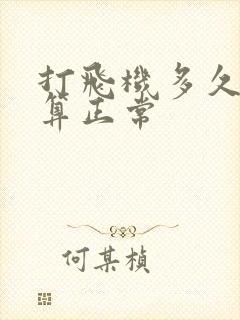 打飛機多久
算正常
何某楨